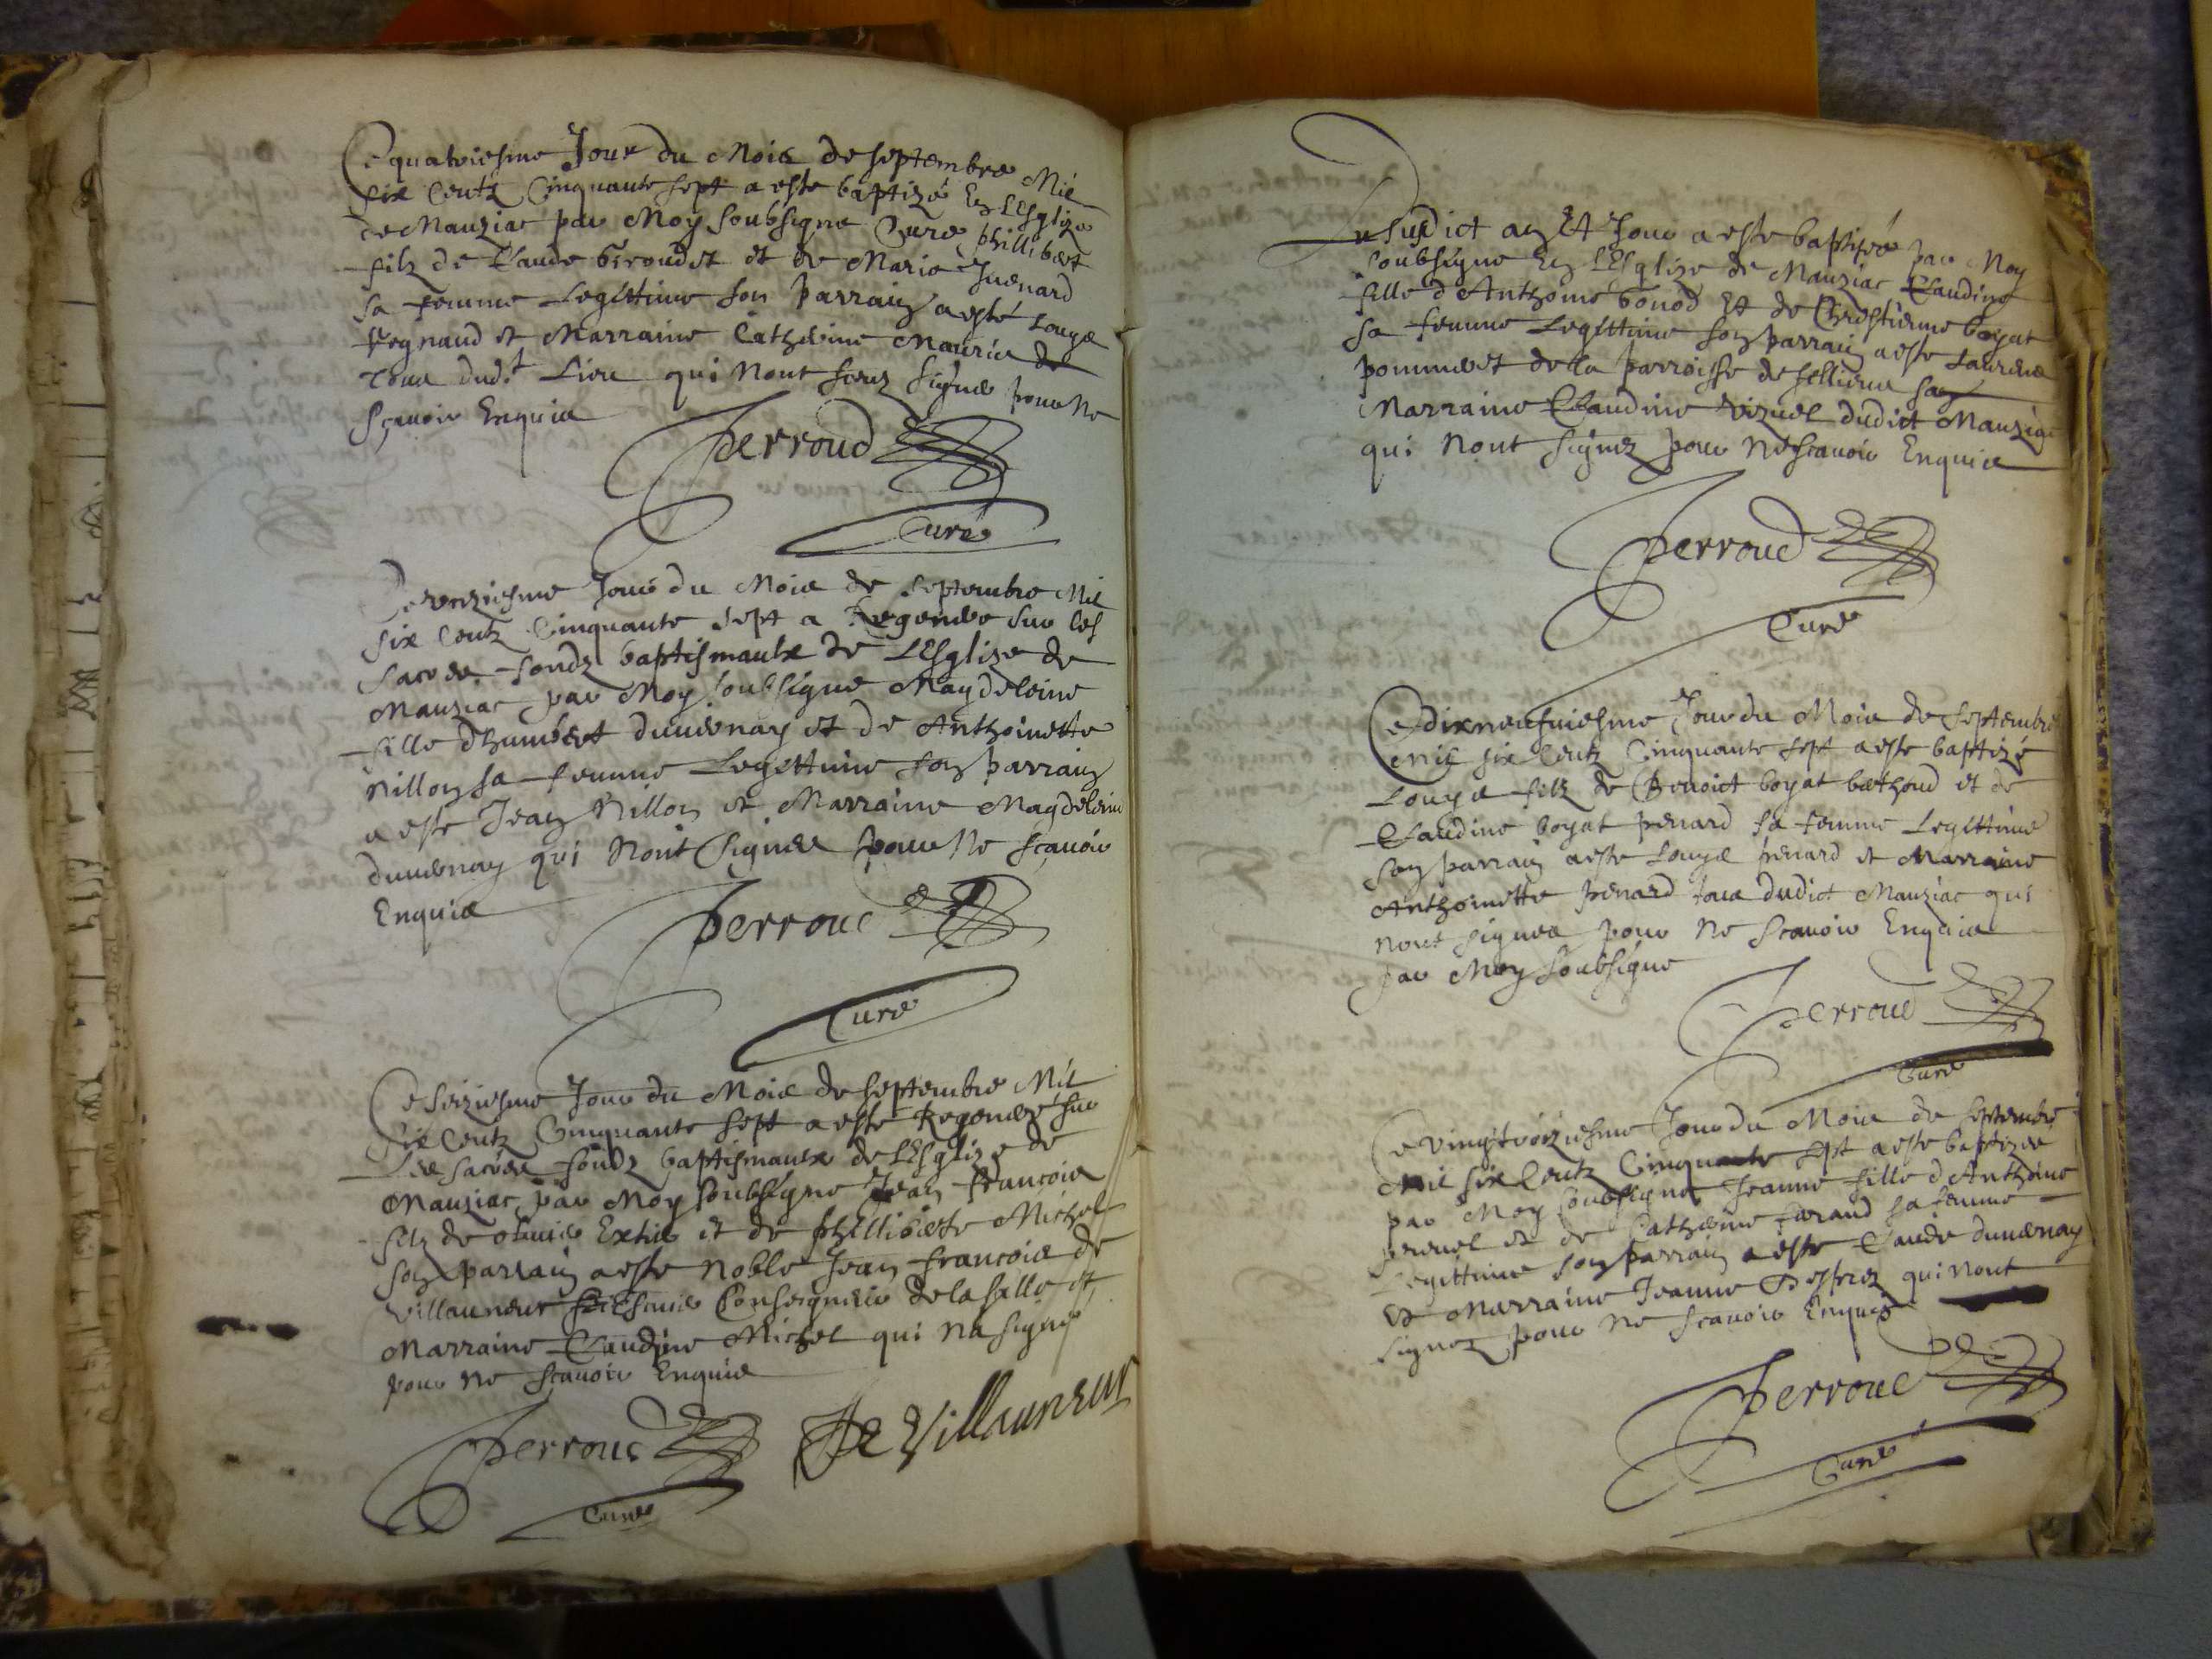 Ce quatriesme Jour du Mois de septembre Mil
six Centz Cinquante sept a este baptizé En LEsglize
de Mauziac par Moy soubsigne Curé phillibert
filz de Claude Giroudet et de Marie Juenard
sa femme Legittime son parrain a esté Louys
Regnaud et Marraine Catherine Mauris de
tous dud.t Lieu qui Nont sceuz signer pour Ne
sçavoir Enquis
Perroud
Curé
Ce Jour du Mois de septembre Mil
six Centz Cinquante sept a Regenere sur les
sacres fondz baptismaulx de LEsglize de
Mauziac par Moy soubsigne Magdeleine
fille dhumbert duvernay et de Anthoinette
Nillon sa femme Legittime son parrain
a este Jean Nillon et Marraine Magdeleine
duvernay qui Nont Signes pour Ne sçavoir
Enquis
Perroud
Curé
Ce seiziesme Jour du Mois de septembre Mil
six Centz Cinquante sept a este Regeneré sur
Les sacres fondz baptismaulx de LEsglize de
Mauziac par Moy soubsigne Jean francois
filz de et de philliberte Michel
son parrain a este Noble Jean francois de
Villauneur Conseigneur de la salle et
Marraine Claudine Michel qui Na signé
pour Ne scavoir Enquis
Perroud De Villauneur
Curé
Du susdict an Et Jour a este baptisée par Moy
soubsigne En LEsglize de Mauziac Claudine
fille d'Anthoine bonod Et de Chrestienne boyat
sa femme Legittime son parrain a este Laurens
pommeret de la parroisse de sellieres sa
Marraine Claudine dudict Mauziac
qui Nont signez pour Ne scavoir Enquis
Perroud
Curé
Ce dixneufuiesme Jour du Mois de septembre
Mil six Centz Cinquante sept a este baptizé
Louys filz de Benoict boyat berthoud et de
Claudine boyat penard sa femme Legittime
son parrain a este Louys penard et Marraine
Anthoinette penard tous dudict Mauziac qui
nont signes pour Ne scavoir Enquis
par Moy soubsigne
Perroud
Curé
Ce vingttroiziesme Jour du Mois de septembre
Mil six Centz Cinquante sept a este baptizee
par Moy soubsigne Jeanne fille d'Anthoine
et de Catherine sa femme
Legittime son parrain a este Claude duvernay
Et Marraine Jeanne qui nont
signez pour Ne scavoir Enquis
Perroud
Curé